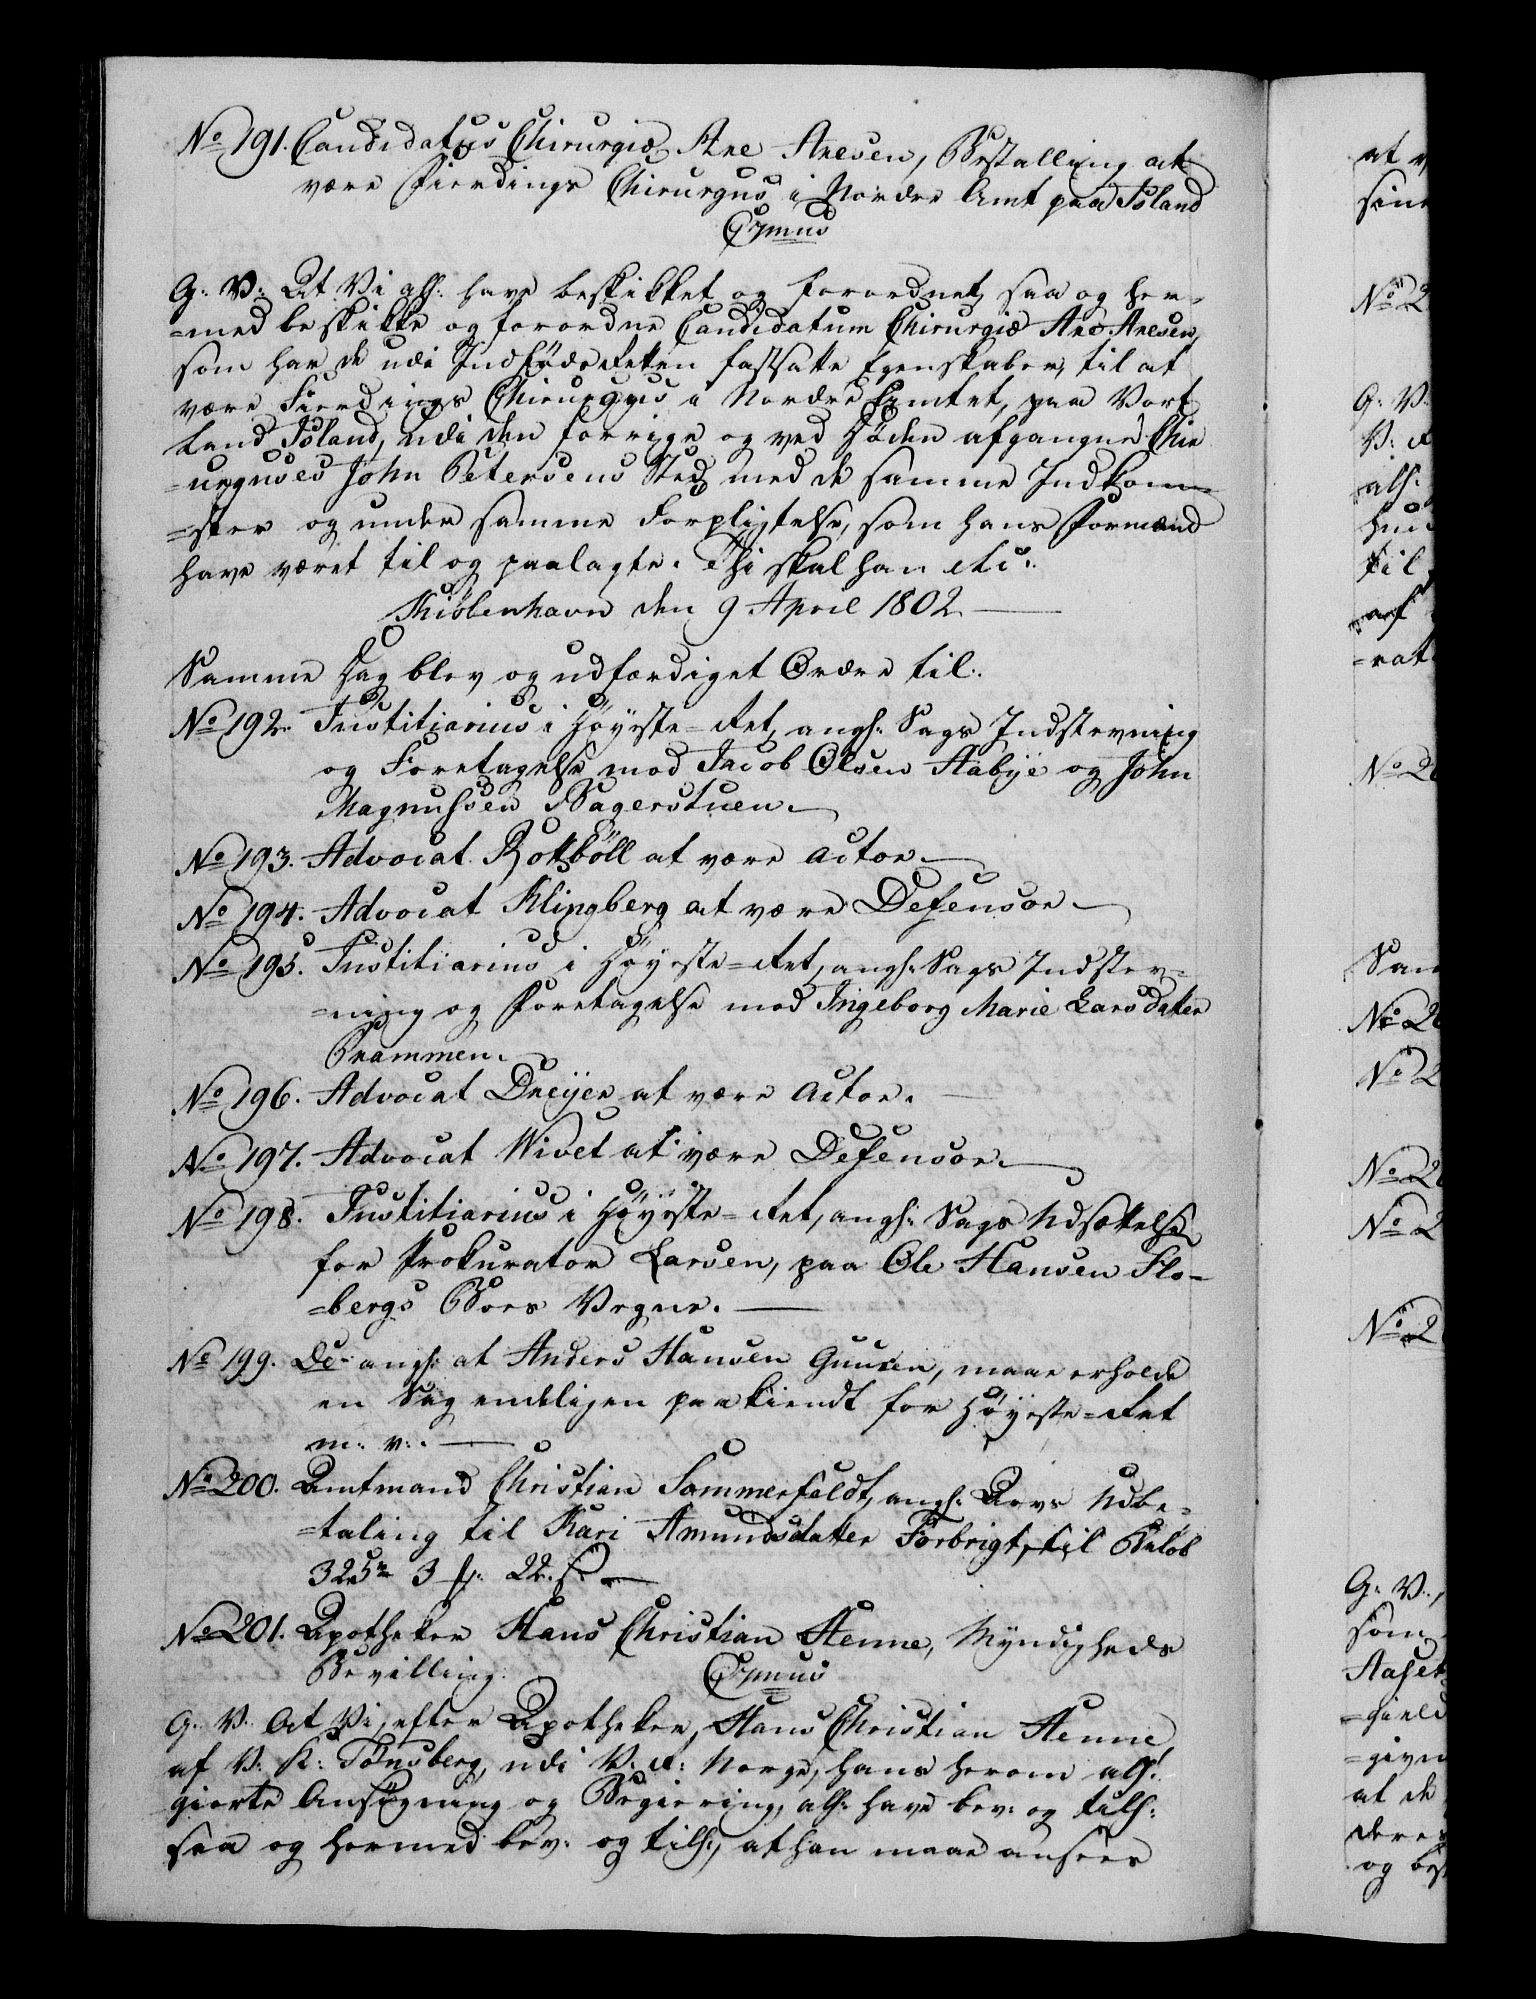 No 191. Candidatus Chirurgiæ Are Aresen, Bestalling at
være Fierdings Chirurgus i Nordre Amt paa Island
G: V: At Vi alh: have beskikket og forordnet, saa og her-
=med beskikke og forordne Candidatum Chirurgiæ Are Aresen,
som har de udi Indfødsretten fastsatte Egenskaber, til at
være Fierdings Chirurgus i Nordre Amtet, paa Vort
Land Island, udi den forrige og ved Døden afgangne Chir
=urguses John Petersens Sted, med de samme Indkom-
=ster og under samme Forpligtelse, som hans Formænd
have været til og paalagte. Thi skal han etc:
Kiøbenhavn den 9 April 1802.
Samme Dag blev og udfærdiget Ordre til:
No 192. Justitiarius i Høyeste-Ret, angl: Sags Indstevning
og Foretagelse mod Jacob Olsen Aabye og John
Magnussen Bagerstuen.
No 193. Advocat Rotbøll at være Actor.
No 194. Advocat Klingberg at være Defensor.
No 195. Justitiarius i Høyeste=Ret, angl: Sags Indstev-
=ning og Foretagelse mod Ingeborg Marie Larsdatter
Brammen.
No 196. Advocat Dreyer at være Actor.
No 197. Advocat Wivet at være Defensor.
No 198. Justitiarius i Høyeste=Ret, angl: Sags Udsættelse
for Prokurator Larsen, paa Ole Hansen Flo-
=bergs Boes Vegne.
No 199. De angl: at Anders Hansen Guusen, maae erholde
en Sag endeligen paakiendt for Høyeste=Ret
m: v:
No 200. Amtmand Christian Sommerfeldt, angl: Arvs Udbe-
=taling til Kari Amundsdatter Forbrigt, til Beløb
325 rd 3 f: 22 s.
No 201. Apotheker Hans Christian Henne, Myndigheds
Bevilling.
G: V: At Vi, efter Apotheker, Hans Christian Henne,
af V: K: Tønsberg, udi V: R: Norge, hans herom alh:
giorte Ansøgning og Begiering, alh: have bev: og tilh:
saa og hermed bev: og tilh:, at han maae ansees